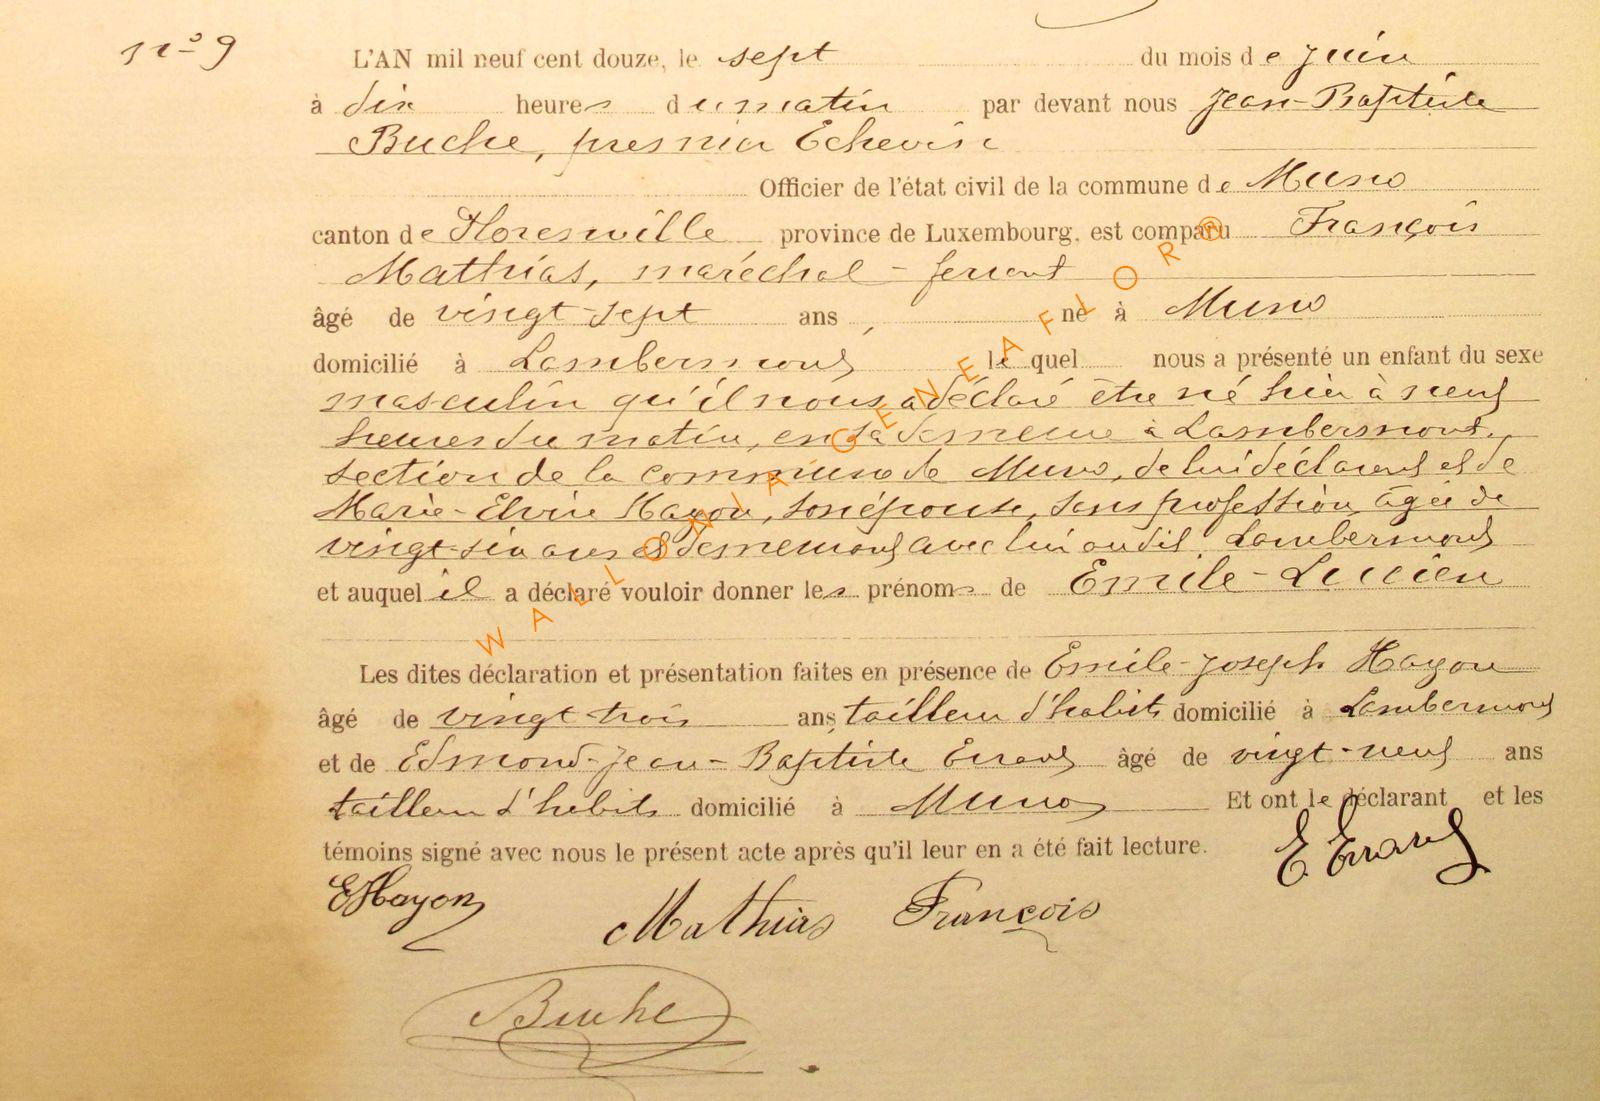 nº 9
L'AN mil neuf cent douze, le sept du mois de juin
à dix heures du matin par devant nous Jean-Baptiste
Buche, premier Echevin
Officier de l'état civil de la commune de Muno
canton de Florenville province de Luxembourg, est comparu François
Mathias, maréchal-ferrant
âgé de vingt-sept ans, né à Muno
domicilié à Lambermont lequel nous a présenté un enfant du sexe
masculin qu'il nous a déclaré être né hier à neuf
heures du matin, en sa demeure à Lambermont,
section de la commune de Muno, de lui déclarant et de
Marie-Elvire Hayon, son épouse, sans profession, âgée de
vingt-six ans et demeurant avec lui audit Lambermont
et auquel il a déclaré vouloir donner les prénoms de Emile-Lucien
Les dites déclaration et présentation faites en présence de Emile-Joseph Hayon
âgé de vingt-trois ans, tailleur d'habits domicilié à Lambermont
et de Edmond-Jean-Baptiste Errard âgé de vingt-neuf ans
tailleur d'habits domicilié à Muno Et ont le déclarant et les
témoins signé avec nous le présent acte après qu'il leur en a été fait lecture.
E Errard
EHayon
Mathias François
Buche
WALLONIA GENEAFLOR®